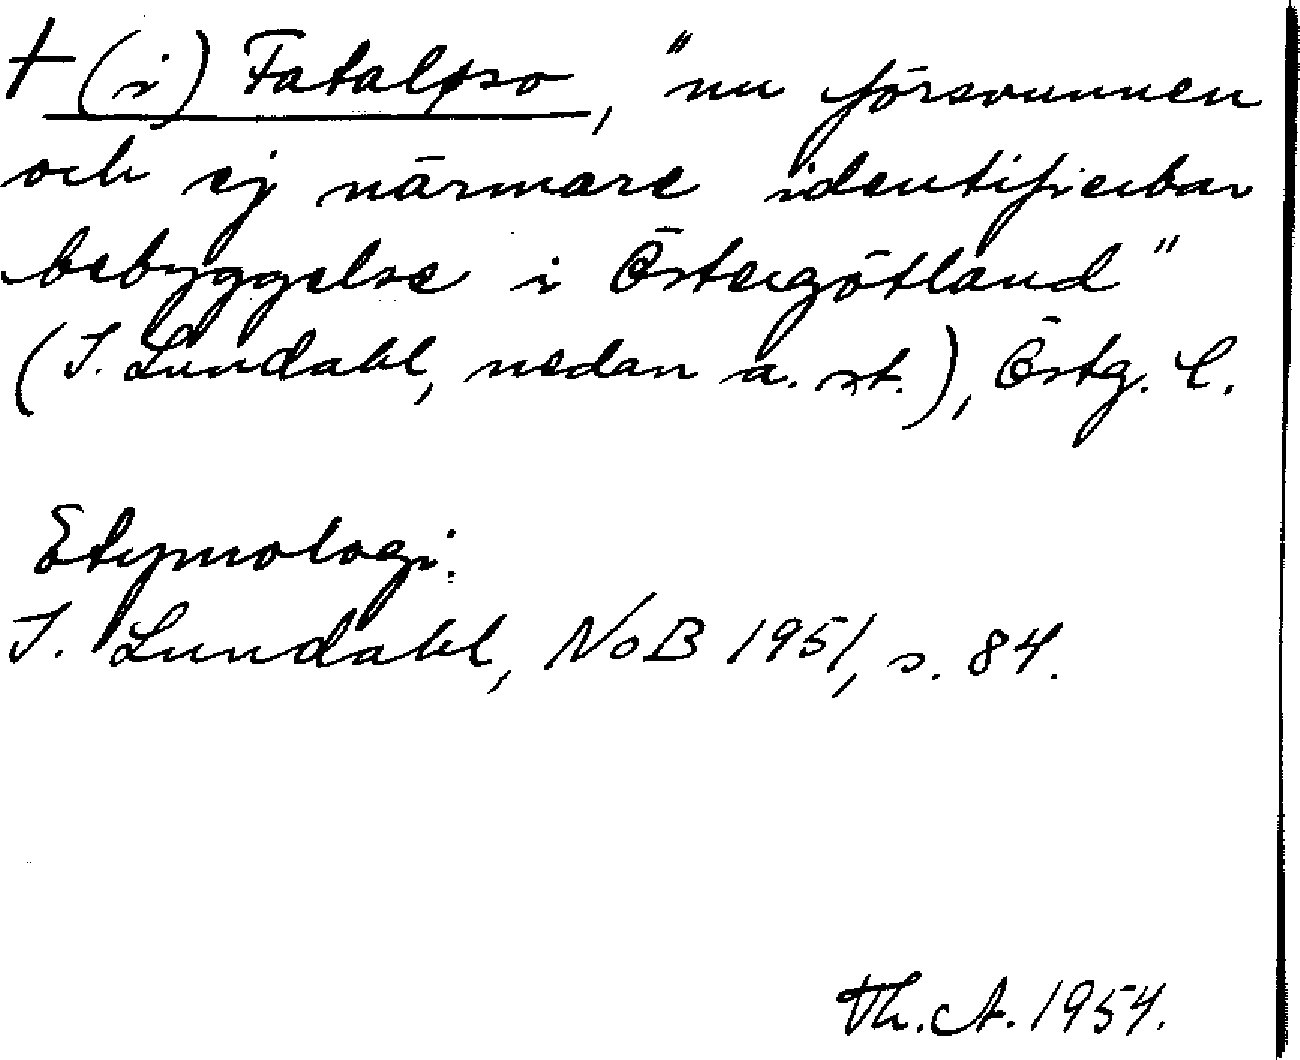 † (i) Fataløso, "nu försvunnen
och ej närmare identifierbar
bebyggelse i Östergötland"
(I. Lundahl, nedan a. st.), Östg. l.
Etymologi:
I. Lundahl, NoB 1951, s. 84.
Th. A. 1954.